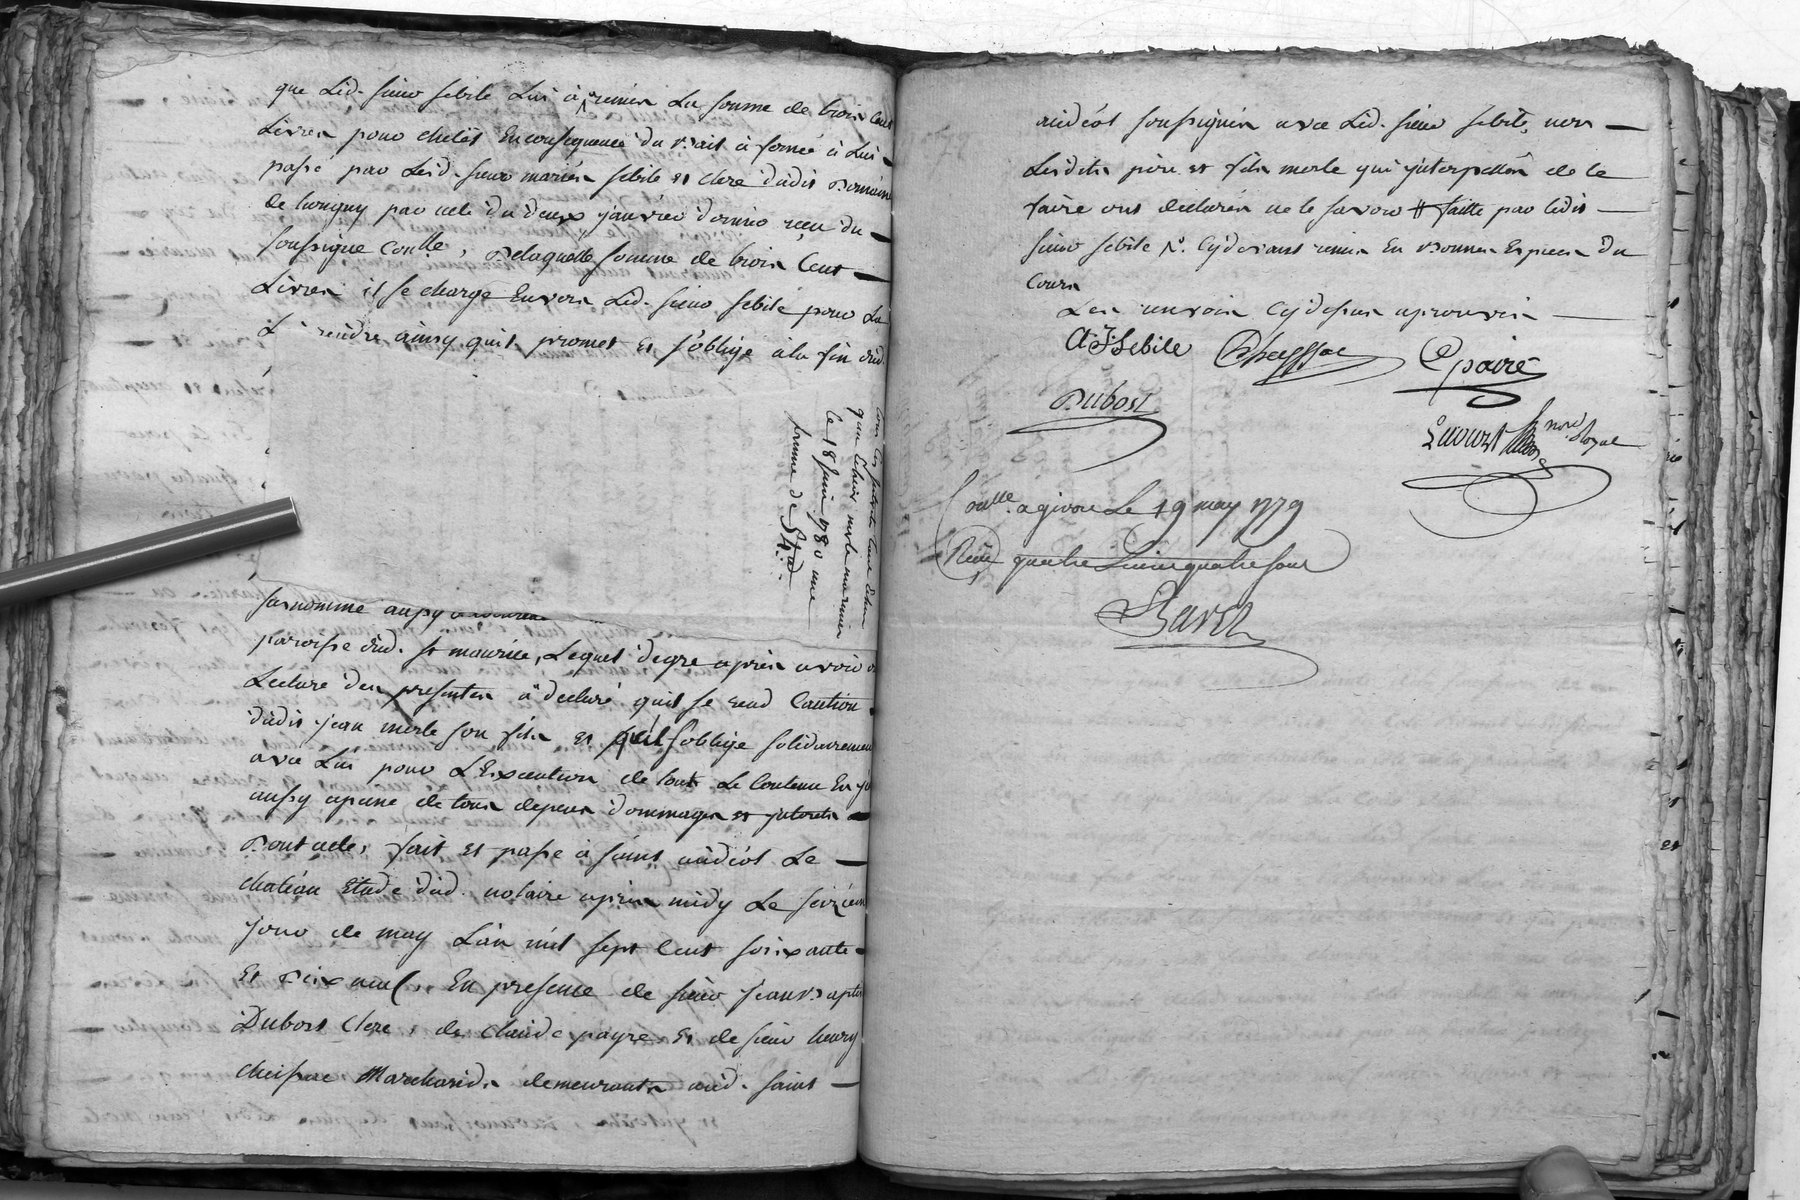 que led. sieur sebile lui a remis la somme de trois cent
livres pour chetel en consequence du bail à ferme à lui
passé par lesd. sieurs mariés sebile et clere dudit domaine
de longny par acte du deux janvier dernier reçu du
soussigné conlle, delaquelle somme de trois cent
livres il se charge envers led. sieur sebile pour la
l rendre ainsy quil promet et s'oblige à la fin dud.
le 18 juin 1780 une
somme de 54
surnomme aussy
paroisse dud. st maurice, lequel degre apres avoir
lecture des presentes a declaré quil se rend caution
dudit jean merle son fils et s'oblige solidairement
avec lui pour l'execution de tout le contenu en y
aussy apeine de tous depens dommages et jnterets
Dont acte, fait et passé à saint andéol le
chatéau Etude dud. notaire apres midy le seizieme
jour de may l'an mil sept cent soixante
et dix neuf, en presence de sieur jean bapte
Dubost clerc, de claude payre et de sieur henry
cheissac Marchands demeurants aud. saint
andéol soussignés avec led. sieur sebile, non
lesdits père et fils merle qui jnterpellés de le
faire ont declarés ne le savoir # faitte par ledit
sieur sebile &. cydevant remis en bonnes especes du
cours
Les renvois cydessus aprouvés
A J Sebile Cheyssac Cpaire
Dubost
not. Royal
Conlle. a givors le 19 may 1779
Reçu quatre livres quatre sous